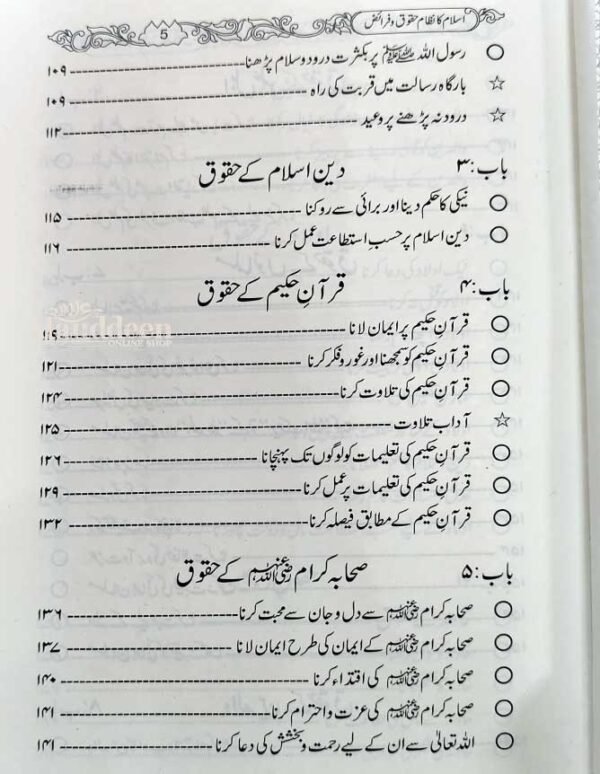 اسلام کا نظام حقوق و فرائض 5
رسول اللہ ﷺ پر بکثرت درود و سلام پڑھنا ۱۰۹
بارگاہ رسالت میں قربت کی راہ ۱۰۹
درود نہ پڑھنے پر وعید ۱۱۲
باب:۳ دین اسلام کے حقوق
نیکی کا حکم دینا اور برائی سے روکنا ۱۱۵
دین اسلام پر حسب استطاعت عمل کرنا ۱۱۶
باب:۴ قرآنِ حکیم کے حقوق
قرآنِ حکیم پر ایمان لانا ۱۱۹
قرآنِ حکیم کو سمجھنا اور غور و فکر کرنا ۱۲۱
قرآنِ حکیم کی تلاوت کرنا ۱۲۴
آداب تلاوت ۱۲۵
قرآنِ حکیم کی تعلیمات کو لوگوں تک پہنچانا ۱۲۶
قرآنِ حکیم کی تعلیمات پر عمل کرنا ۱۲۹
قرآنِ حکیم کے مطابق فیصلہ کرنا ۱۳۲
باب:۵ صحابہ کرام رضی اللہ عنہم کے حقوق
صحابہ کرام رضی اللہ عنہم سے دل و جان سے محبت کرنا ۱۳۶
صحابہ کرام رضی اللہ عنہم کے ایمان کی طرح ایمان لانا ۱۳۷
صحابہ کرام رضی اللہ عنہم کی اقتداء کرنا ۱۴۰
صحابہ کرام رضی اللہ عنہم کی عزت و احترام کرنا ۱۴۱
اللہ تعالیٰ سے ان کے لیے رحمت و بخشش کی دعا کرنا ۱۴۱
ONLINE SHOP